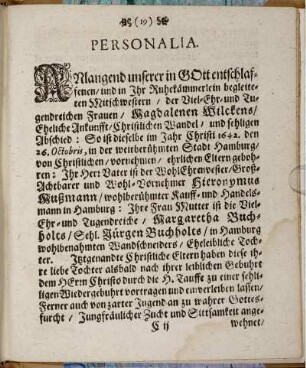 (19)
PERSONALIA.
ANlangend unserer in GOtt entschlaf-
fenen/ und in Ihr Ruhekämmerlein begleite-
ten Mitschwestern / der Viel-Ehr-und Tu-
gendreichen Frauen/ Magdalenen Wilckens/
Eheliche Ankunfft/ Christlichen Wandel / und sehligen
Abschied : So ist dieselbe im Jahr Christi 1642. den
26. Octobris, in der weitberühmten Stadt Hamburg/
von Christlichen/ vornehmen / ehrlichen Eltern gebohr-
ren : Ihr Herr Vater ist der WohlEhrenvester/ Groß-
Achtbarer und Wohl-Vornehmer Hieronymus
Mußmann/ wohlberühmter Kauff-und Handels-
mann in Hamburg : Ihre Frau Mutter ist die Viel-
Ehr-und Tugendreiche / Margaretha Buch-
holts / Sehl. Jürgen Buchholts / in Hamburg
wohlbenahmten Wandschneiders / Eheleibliche Toch-
ter. Jetztgenandte Christliche Eltern haben diese ih-
re liebe Tochter alsbald nach ihrer leiblichen Gebuhrt
dem HErrn Christo durch die H. Tauffe zu einer sehli-
gen Wiedergebuhrt vortragen und einverleiben lassen/
Ferner auch von zarter Jugend an zu wahrer Gottes-
furcht / Jungfräulicher Zucht und Sittsamkeit ange-
C ij
wehnet/